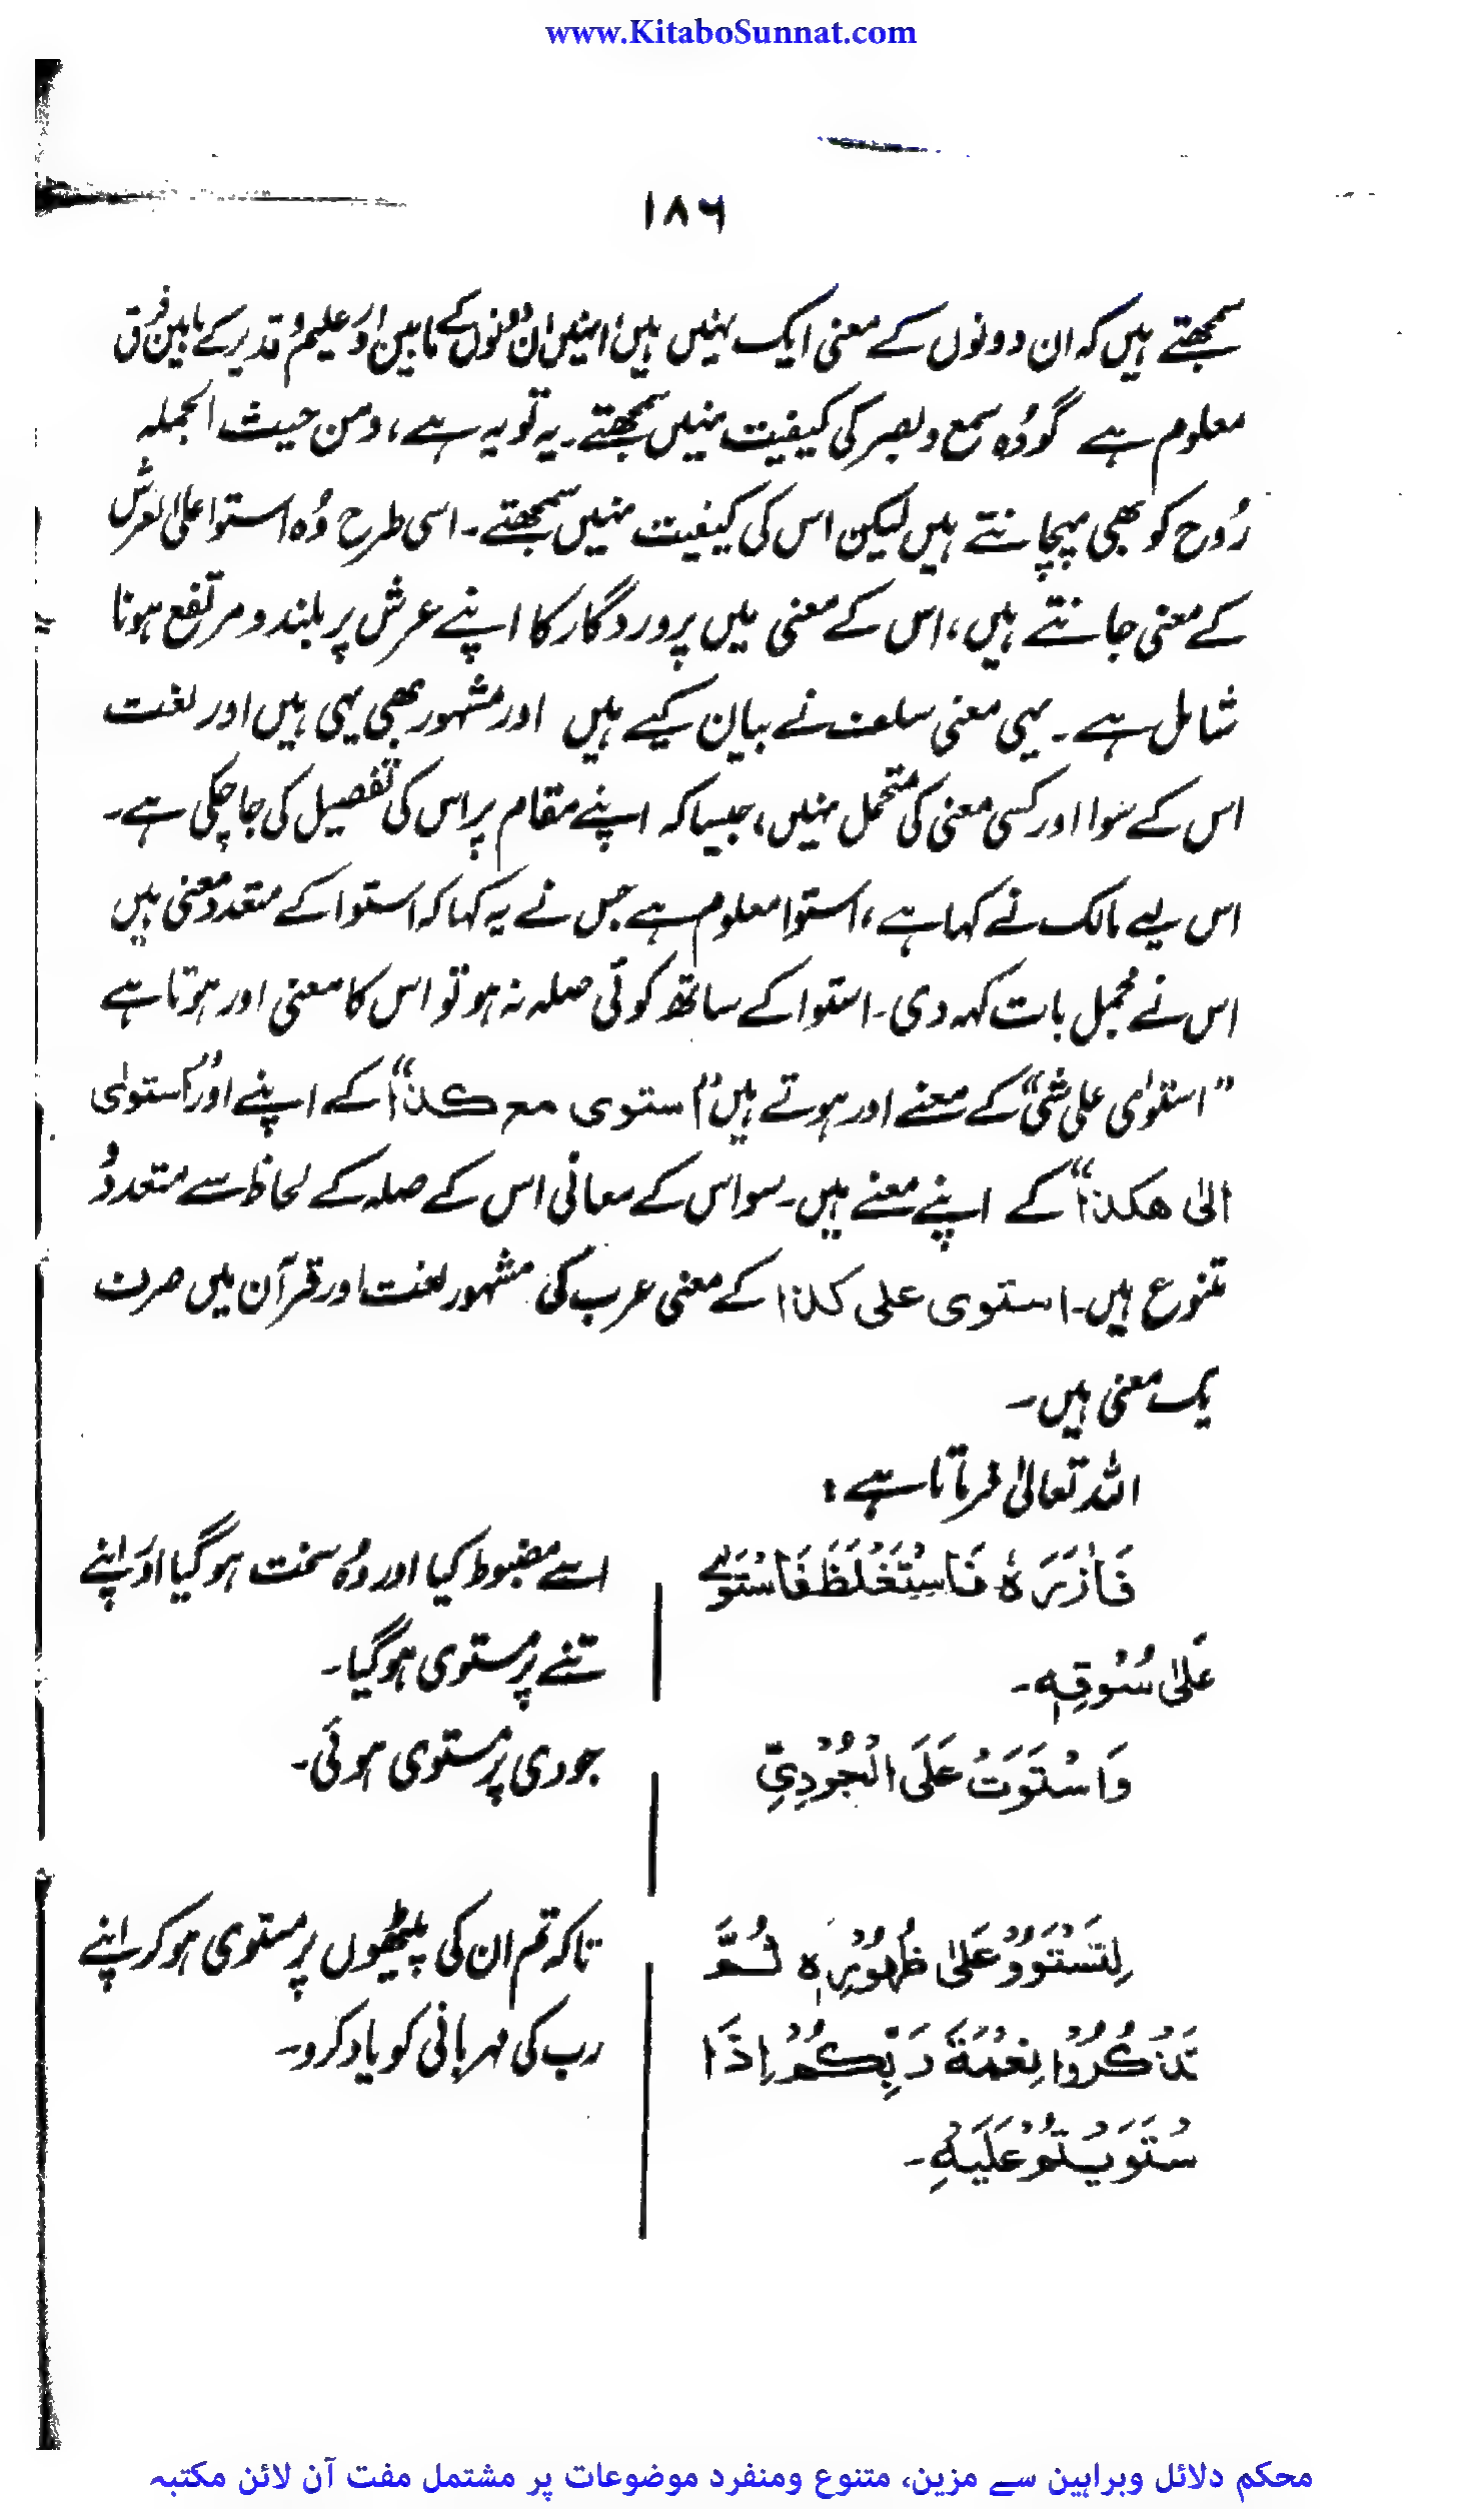 www.KitaboSunnat.com
۱۸۶
سمجھتے ہیں کہ ان دونوں کے معنی ایک نہیں ہیں انہیں ان دونوں کے مابین اور علیم و قدیر کے مابین فرق
معلوم ہے گو وُہ سمع و بصر کی کیفیت نہیں سمجھتے۔ یہ تو یہ ہے، ومن حیث الجملہ
رُوح کو بھی پہچانتے ہیں لیکن اس کی کیفیت نہیں سمجھتے۔ اسی طرح وُہ استوا علی العرش
کے معنی جانتے ہیں، اس کے معنی میں پروردگار کا اپنے عرش پر بلند و مرتفع ہونا
شامل ہے۔ یہی معنی سلف نے بیان کیے ہیں اور مشہور بھی یہی ہیں اور لغت
اس کے سوا اور کسی معنی کی متحمل نہیں، جیسا کہ اپنے مقام پر اس کی تفصیل کی جا چکی ہے۔
اس لیے مالک نے کہا ہے، استوا معلوم ہے جس نے یہ کہا کہ استوا کے متعدد معنی ہیں
اس نے مجمل بات کہہ دی۔ استوا کے ساتھ کوئی صلہ نہ ہو تو اس کا معنی اور ہوتا ہے
”استویٰ علی شیٔ“ کے معنے اور ہوتے ہیں ”استوی مع کذا“ کے اپنے اور ”استویٰ
الیٰ ھکذا“ کے اپنے معنے ہیں۔ سو اس کے معانی اس کے صلہ کے لحاظ سے متعدد و
تنوع ہیں۔ استوی علی کذا کے معنی عرب کی مشہور لغت اور قرآن میں صرف
یک معنی ہیں۔
اللہ تعالیٰ فرماتا ہے:
فَاٰزَرَہٗ فَاسْتَغْلَظَ فَاسْتَوٰے
عَلیٰ سُوْقِہٖ۔
اسے مضبوط کیا اور وُہ سخت ہو گیا اور اپنے
تنے پر مستوی ہو گیا۔
وَاسْتَوَتْ عَلَی الْجُوْدِیِّ
جودی پر مستوی ہوئی۔
لِتَسْتَوٗا عَلیٰ ظُہُوْرِہٖ ثُمَّ
تَذْکُرُوْا نِعْمَۃَ رَبِّکُمْ اِذَا
سْتَوَیْتُمْ عَلَیْہِ۔
تاکہ تم ان کی پیٹھوں پر مستوی ہو کر اپنے
رب کی مہربانی کو یاد کرو۔
محکم دلائل وبراہین سے مزین، متنوع ومنفرد موضوعات پر مشتمل مفت آن لائن مکتبہ